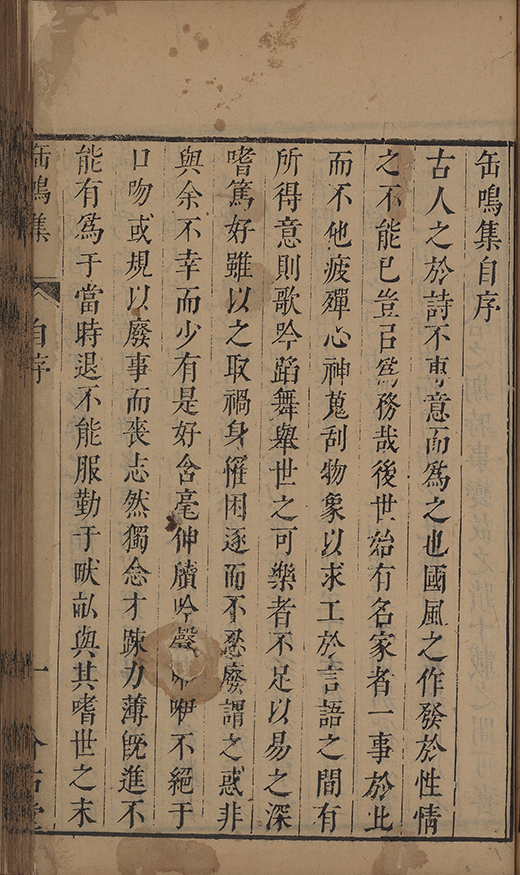 缶鳴集自序
古人之於詩不專意而爲之也國風之作發於性情
之不能已豈以爲務哉後世始有名家者一事於此
而不他疲殫心神蒐刮物象以求工於言語之間有
所得意則歌吟蹈舞舉世之可樂者不足以易之深
嗜篤好雖以之取禍身罹困逐而不忍廢謂之惑非
與余不幸而少有是好含毫伸牘吟聲咿咿不絕于
口吻或規以廢事而喪志然獨念才踈力薄旣進不
能有爲于當時退不能服勤于畎畝與其嗜世之末
缶鳴集 自序 一